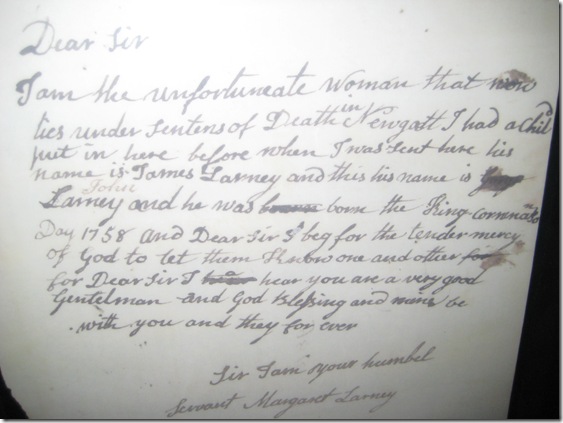 Dear Sir
I am the unfortuneate Woman that now
lies under Sentens of Death in Newgatt I had a Child
put in here before when I was Sent here his
name is James Larney and this his name is
John
Larney and he was born the King Corrination
Day 1758 and Dear Sir I beg for the tender mercy
of God to let them Know one and other for
for Dear Sir I hear you are a very good
Gentelman and God Blessing and mine be
with you and they for ever
Sir I am your humbel
Servant Margaret Larney